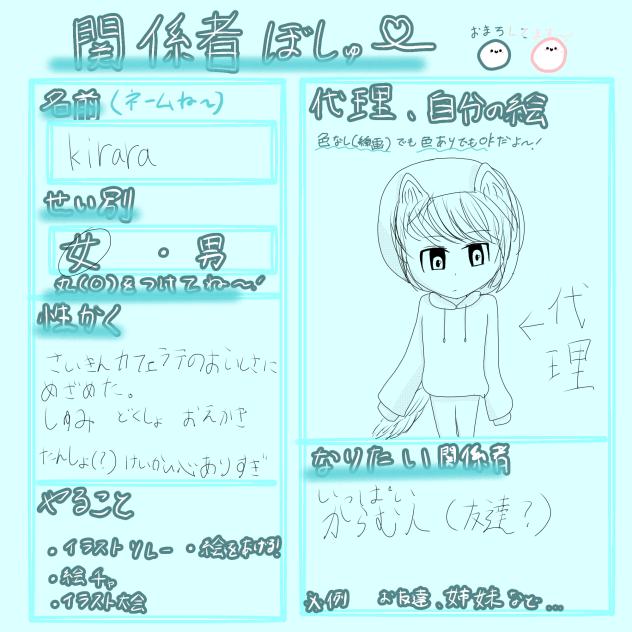 関係者ぼしゅ
おまちしてます〜
名前(ネームね〜)
kirara
せい別
女・男
丸(○)をつけてね〜!
性かく
さいきんカフェラテのおいしさに
めざめた。
しゅみ どくしょ おえかき
たんしょ(?)けいかい心ありすぎ
やること
・イラストリレー ・絵をあげる!
・絵チャ
・イラスト大会
代理、自分の絵
色なし(線画)でも色ありでもOKだよ〜!
←代理
なりたい関係者
いっぱい
からむ人(友達?)
※例 お友達、姉妹など...